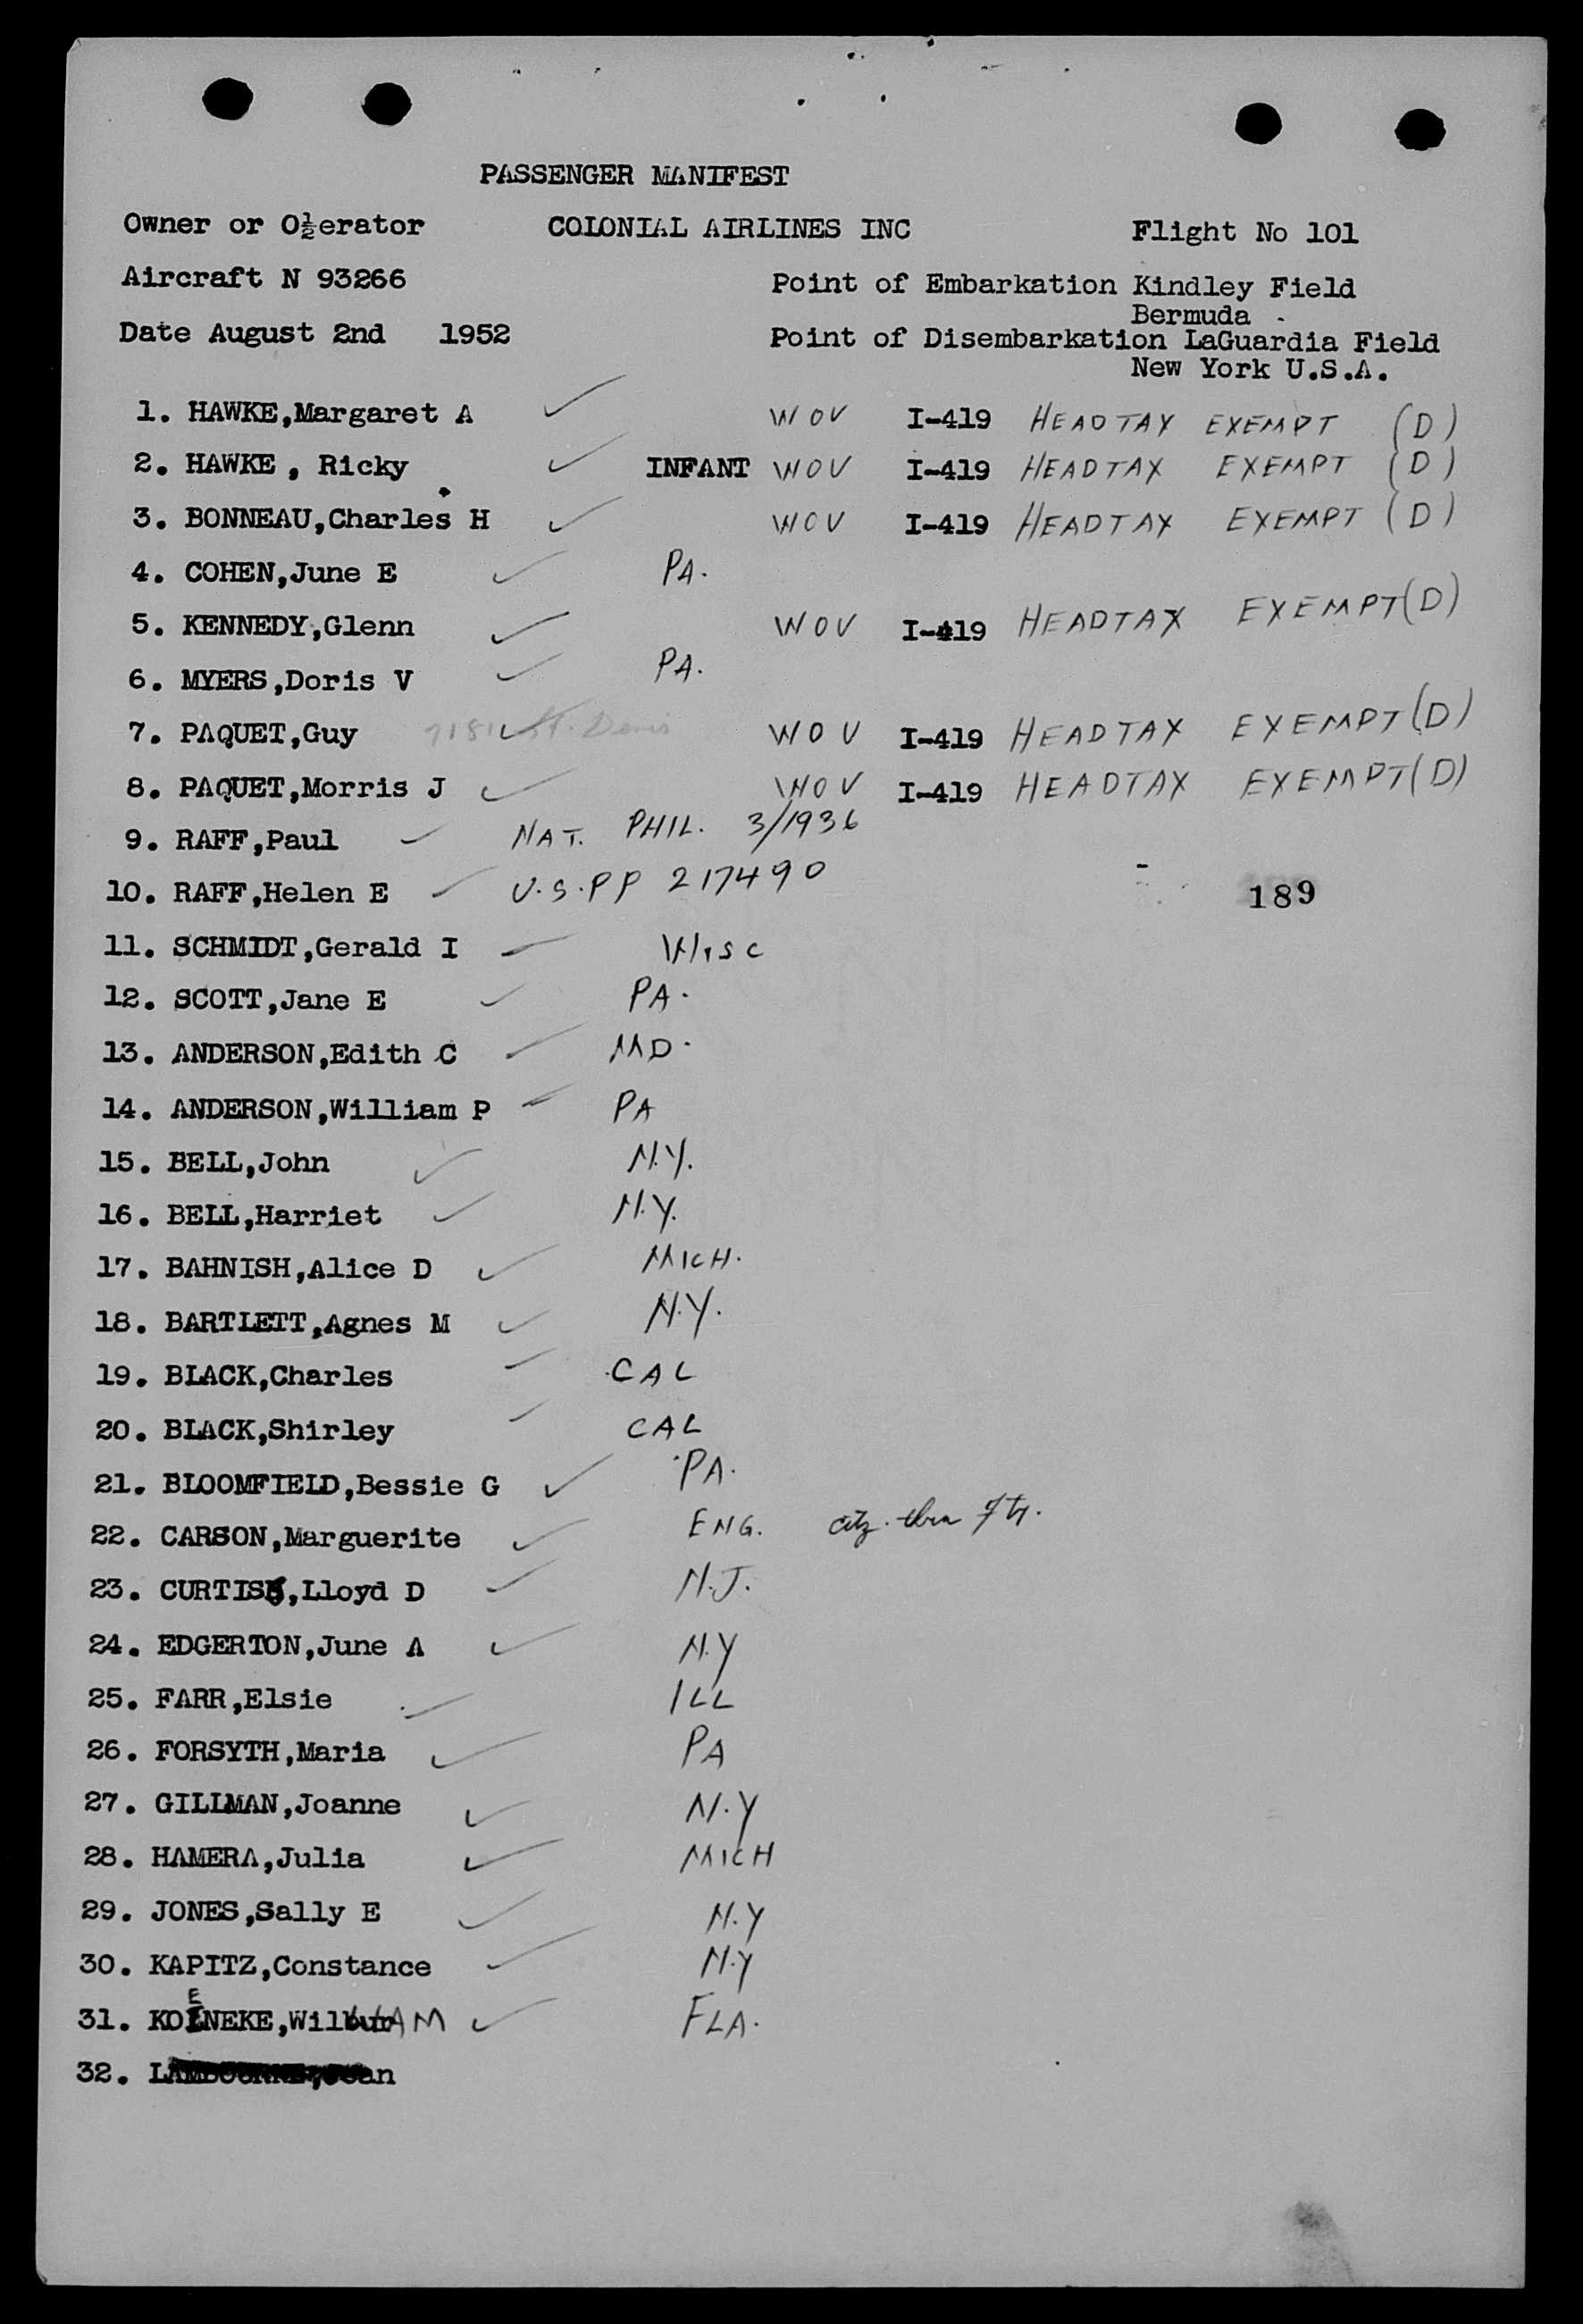 PASSENGER MANIFEST
Owner or O½erator COLONIAL AIRLINES INC Flight No 101
Aircraft N 93266 Point of Embarkation Kindley Field
Bermuda
Date August 2nd 1952 Point of Disembarkation LaGuardia Field
New York U.S.A.
1. HAWKE,Margaret A WOV I-419 HEADTAX EXEMPT (D)
2. HAWKE, Ricky INFANT WOV I-419 HEADTAX EXEMPT (D)
3. BONNEAU,Charles H WOV I-419 HEADTAX EXEMPT (D)
4. COHEN,June E PA.
5. KENNEDY,Glenn WOV I-419 HEADTAX EXEMPT (D)
6. MYERS,Doris V PA.
7. PAQUET,Guy St. Denis WOV I-419 HEADTAX EXEMPT (D)
8. PAQUET,Morris J WOV I-419 HEADTAX EXEMPT (D)
9. RAFF,Paul NAT. PHIL. 3/1936
10. RAFF,Helen E U.S.PP 217490 189
11. SCHMIDT,Gerald I Wisc
12. SCOTT,Jane E PA.
13. ANDERSON,Edith C MD.
14. ANDERSON,William P PA
15. BELL,John N.Y.
16. BELL,Harriet N.Y.
17. BAHNISH,Alice D MICH.
18. BARTLETT,Agnes M N.Y.
19. BLACK,Charles CAL
20. BLACK,Shirley CAL
21. BLOOMFIELD,Bessie G PA.
22. CARSON,Marguerite ENG. citz. thru
23. CURTISS,Lloyd D N.J.
24. EDGERTON,June A N.Y
25. FARR,Elsie ILL
26. FORSYTH,Maria PA
27. GILLMAN,Joanne N.Y
28. HAMERA,Julia MICH
29. JONES,Sally E N.Y
30. KAPITZ,Constance N.Y
31. KOENEKE,WilliAM FLA.
32.